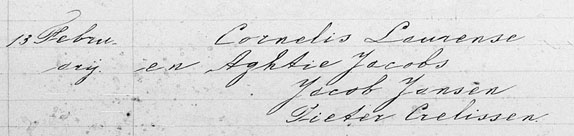 13 Febru- Cornelis Laurense
arij. en Aghtie Jacobs
Jacob Jansen
Pieter Crelissen